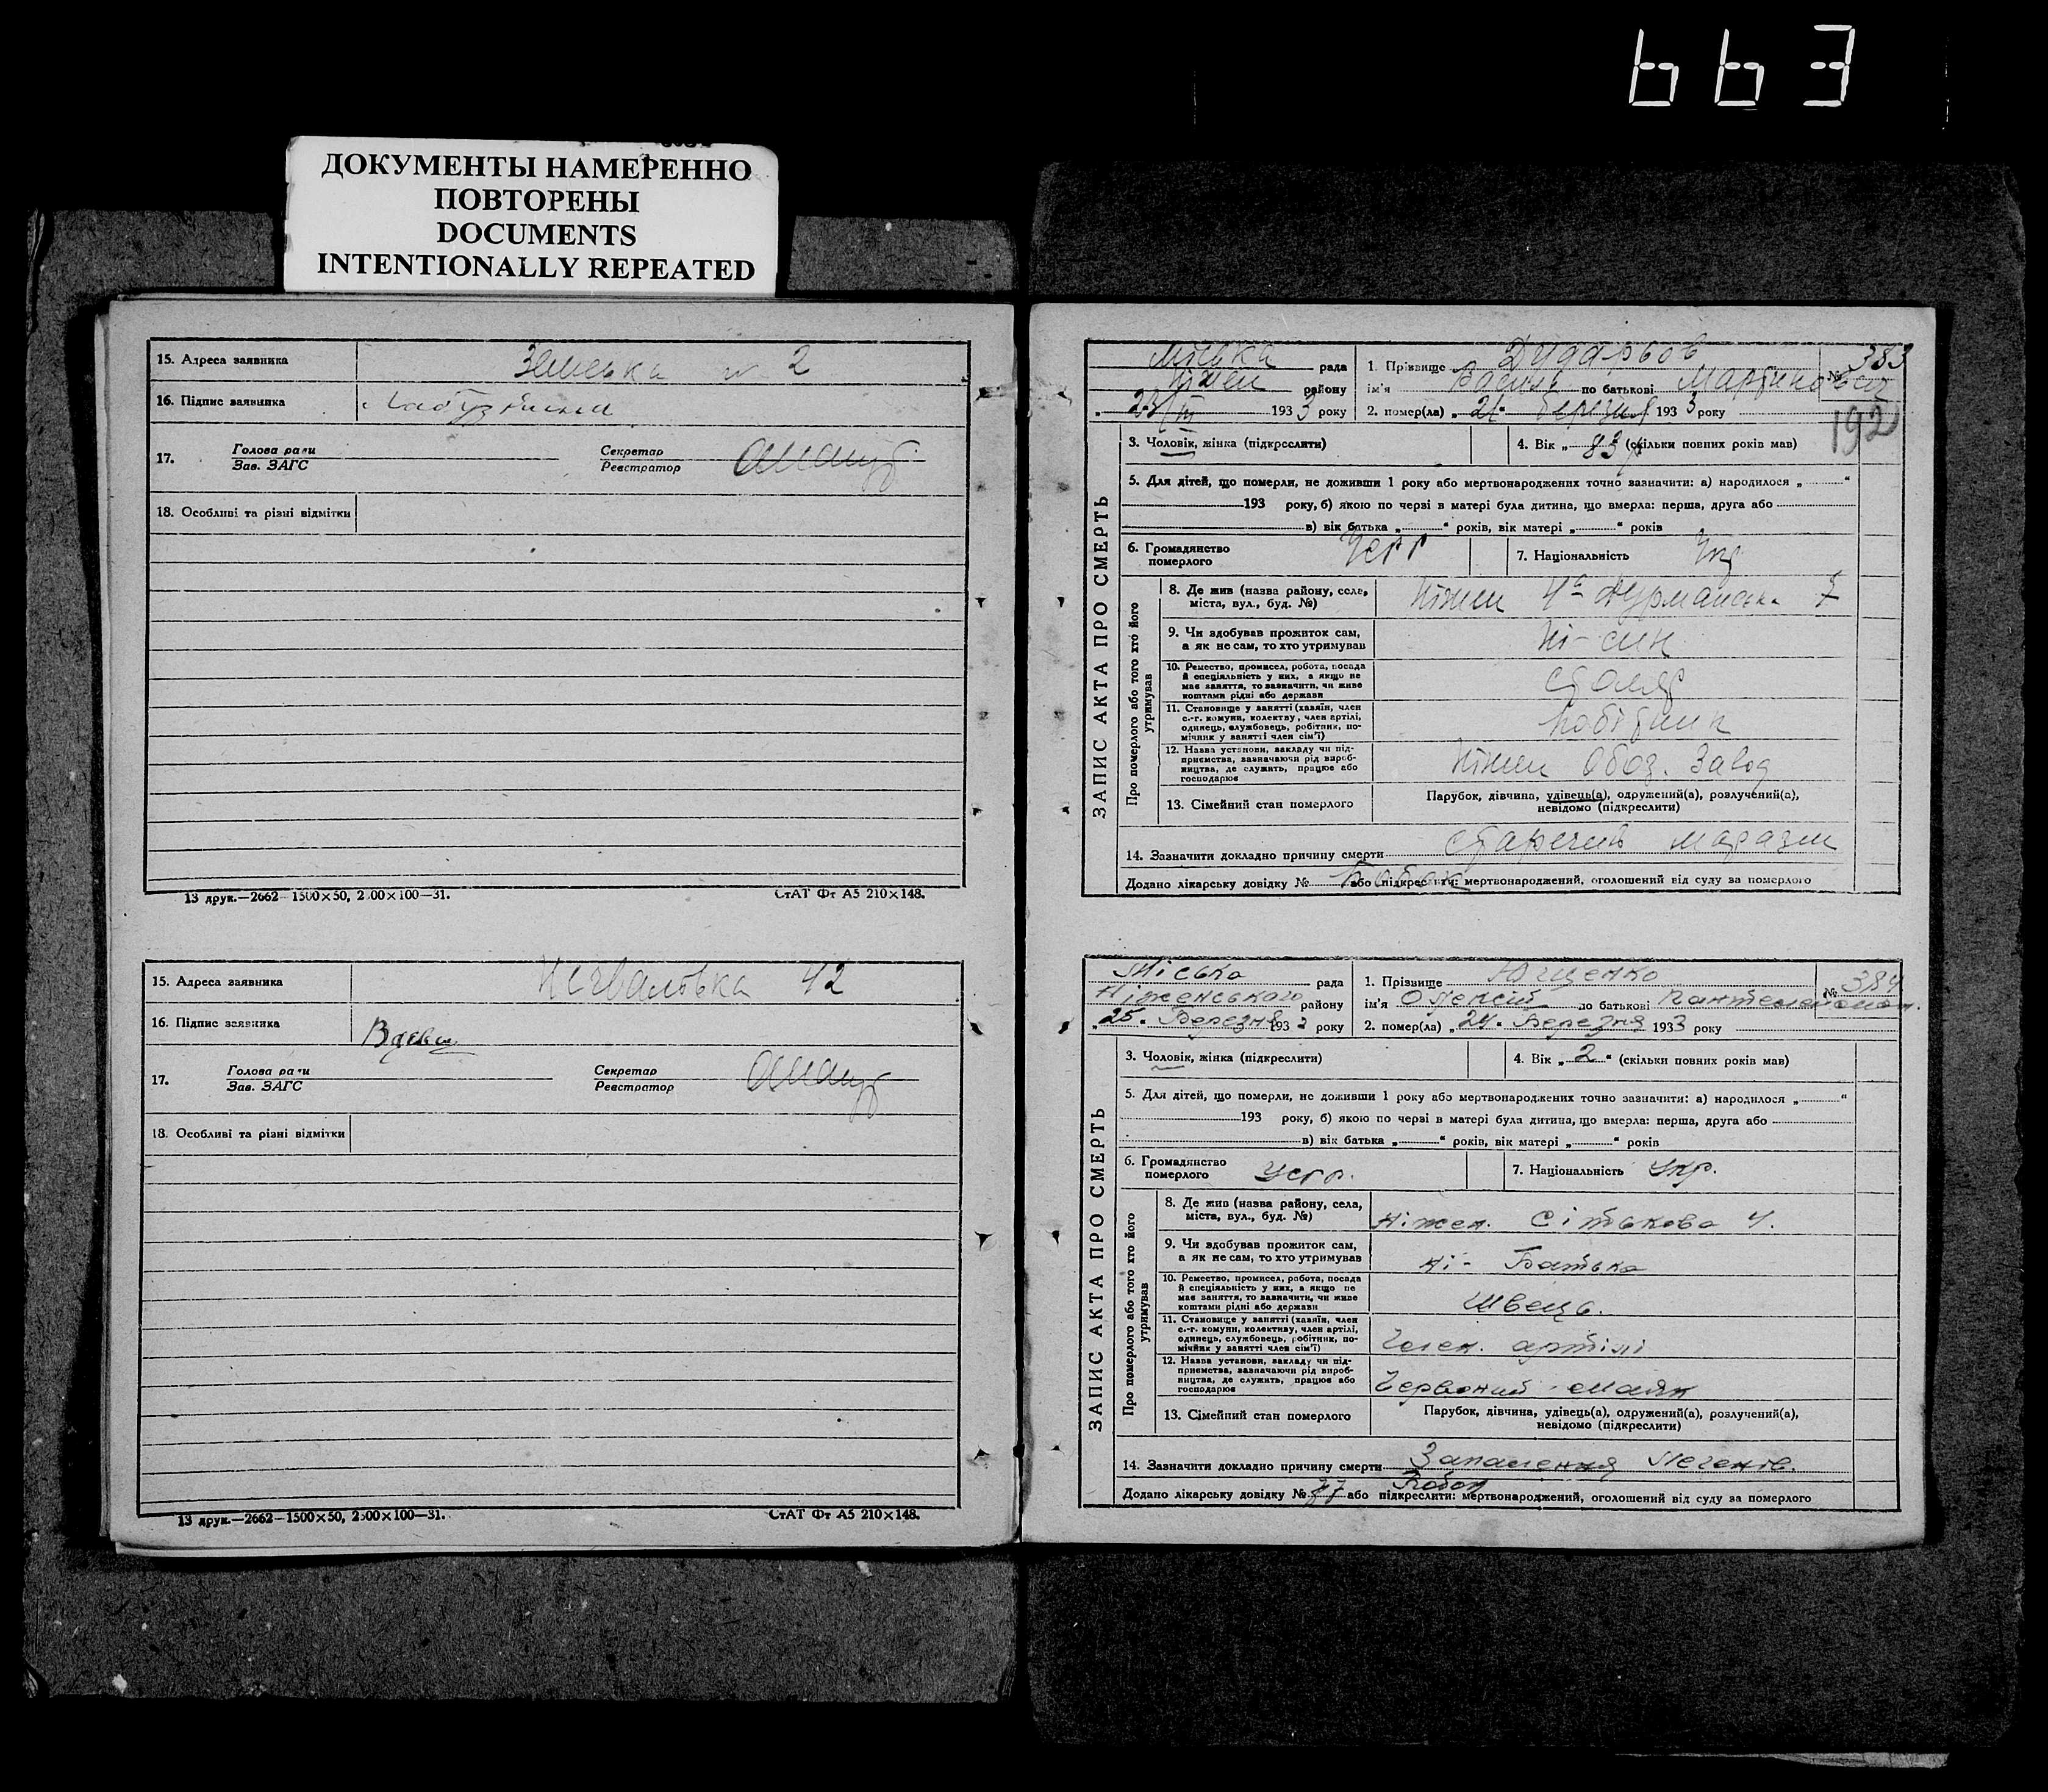 663
ДОКУМЕНТЫ НАМЕРЕННО
ПОВТОРЕНЫ
DOCUMENTS
INTENTIONALLY REPEATED
15. Адреса заявника 2
16. Підпис заявника
17. Голова ради Секретар
Зав. ЗАГС Реєстратор
18. Особливі та різні відмітки
13 друк.—2662—1500×50, 2500×100—31. СтАТ Фт А5 210×148.
15. Адреса заявника 42
16. Підпис заявника
17. Голова ради Секретар
Зав. ЗАГС Реєстратор
18. Особливі та різні відмітки
13 друк.—2662—1500×50, 2500×100—31. СтАТ Фт А5 210×148.
ЗАПИС АКТА ПРО СМЕРТЬ
Міська рада 1. Прізвище Дударьов № 383
Ніжен району ім'я Василь по батькові Мартинович
„23/III 1933 року 2. помер(ла) „21" березня 1933 року
192
3. Чоловік, жінка (підкреслити) 4. Вік „83 (скільки повних років мав)
5. Для дітей, що померли, не доживши 1 року або мертвонароджених точно зазначити: а) народилося „ “
193 року, б) якою по черві в матері була дитина, що вмерла: перша, друга або
в) вік батька „ “ років, вік матері „ “ років
6. Громадянство померлого Усрр 7. Національність Укр
Про померлого або того хто його утримував
8. Де жив (назва району, села, міста, вул., буд. №) Ніжен 7
9. Чи здобував прожиток сам, а як не сам, то хто утримував Ні-син
10. Ремество, промисел, робота, посада й спеціяльність у них, а якщо не має заняття, то зазначити, чи живе коштами рідні або держави столяр
11. Становище у занятті (хазяїн, член с.-г. комуни, колективу, член артілі, одинець, службовець, робітник, помічник у занятті член сім'ї) Робітник
12. Назва установи, закладу чи підприємства, зазначаючи рід виробництва, де служить, працює або господарює Ніжен Обоз. Завод
13. Сімейний стан померлого Парубок, дівчина, удівець(а), одружений(а), розлучений(а),
невідомо (підкреслити)
14. Зазначити докладно причину смерти старечий маразм
Додано лікарську довідку № або підкреслити: мертвонароджений, оголошений від суду за померлого
ЗАПИС АКТА ПРО СМЕРТЬ
Міська рада 1. Прізвище Ющенко № 384
Ніженського району ім'я Олексій по батькові Пантелеймон.
„25" Березня 1933 року 2. помер(ла) „24" Березня 1933 року
3. Чоловік, жінка (підкреслити) 4. Вік „2“ (скільки повних років мав)
5. Для дітей, що померли, не доживши 1 року або мертвонароджених точно зазначити: а) народилося „ “
193 року, б) якою по черві в матері була дитина, що вмерла: перша, друга або
в) вік батька „ “ років, вік матері „ “ років
6. Громадянство померлого Усрр. 7. Національність Укр.
Про померлого або того хто його утримував
8. Де жив (назва району, села, міста, вул., буд. №) Ніжен. Сітькова 4.
9. Чи здобував прожиток сам, а як не сам, то хто утримував Ні- Батько
10. Ремество, промисел, робота, посада й спеціяльність у них, а якщо не має заняття, то зазначити, чи живе коштами рідні або держави Швець.
11. Становище у занятті (хазяїн, член с.-г. комуни, колективу, член артілі, одинець, службовець, робітник, помічник у занятті член сім'ї) Член. артілі
12. Назва установи, закладу чи підприємства, зазначаючи рід виробництва, де служить, працює або господарює Червоний маяк
13. Сімейний стан померлого Парубок, дівчина, удівець(а), одружений(а), розлучений(а),
невідомо (підкреслити)
14. Зазначити докладно причину смерти Запалення Легенів.
Додано лікарську довідку № 77 або підкреслити: мертвонароджений, оголошений від суду за померлого